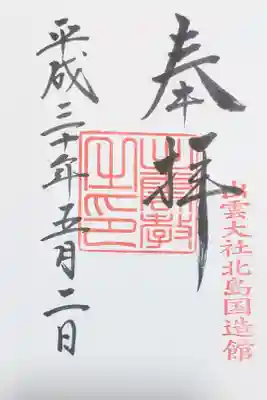 奉拝
出雲大社北島国造館
出雲教之印
平成三十年五月二日